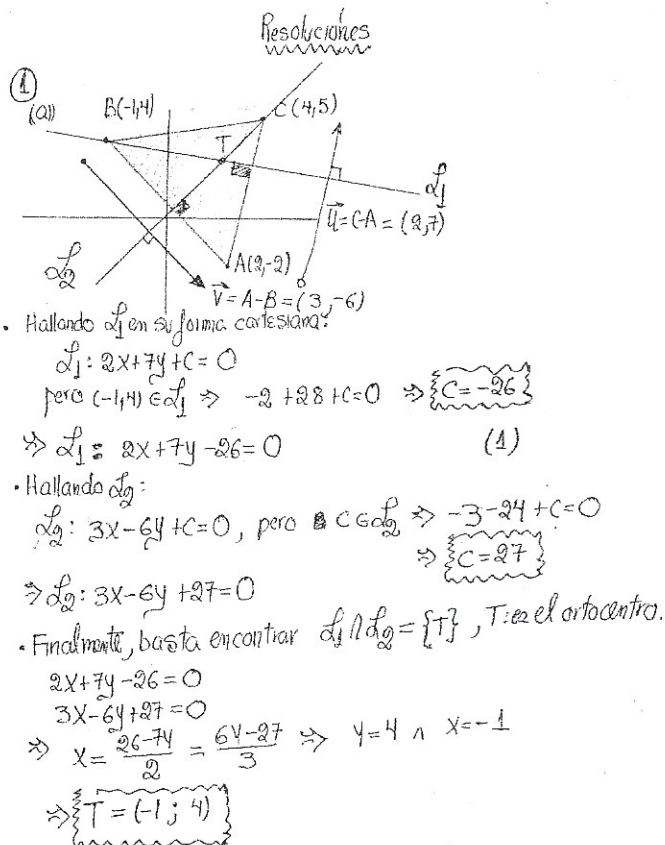 Resoluciones
①
(a)
B(-1,4)
C(4,5)
T
L₁
U⃗=C-A=(2,7)
L₂
A(2,-2)
V⃗=A-B=(3,-6)
• Hallando L₁ en su forma cartesiana:
L₁: 2x+7y+c=0
pero (-1,4)∈L₁ ⇒ -2+28+c=0 ⇒ C=-26
⇒ L₁: 2x+7y-26=0 (1)
• Hallando L₂:
L₂: 3x-6y+c=0, pero C∈L₂ ⇒ -3-24+c=0
⇒ C=27
⇒ L₂: 3x-6y+27=0
• Finalmente, basta encontrar L₁∩L₂={T}, T: es el ortocentro.
2x+7y-26=0
3x-6y+27=0
⇒ x=(26-7y)/2=(6y-27)/3 ⇒ y=4 ∧ x=-1
⇒ T=(-1; 4)